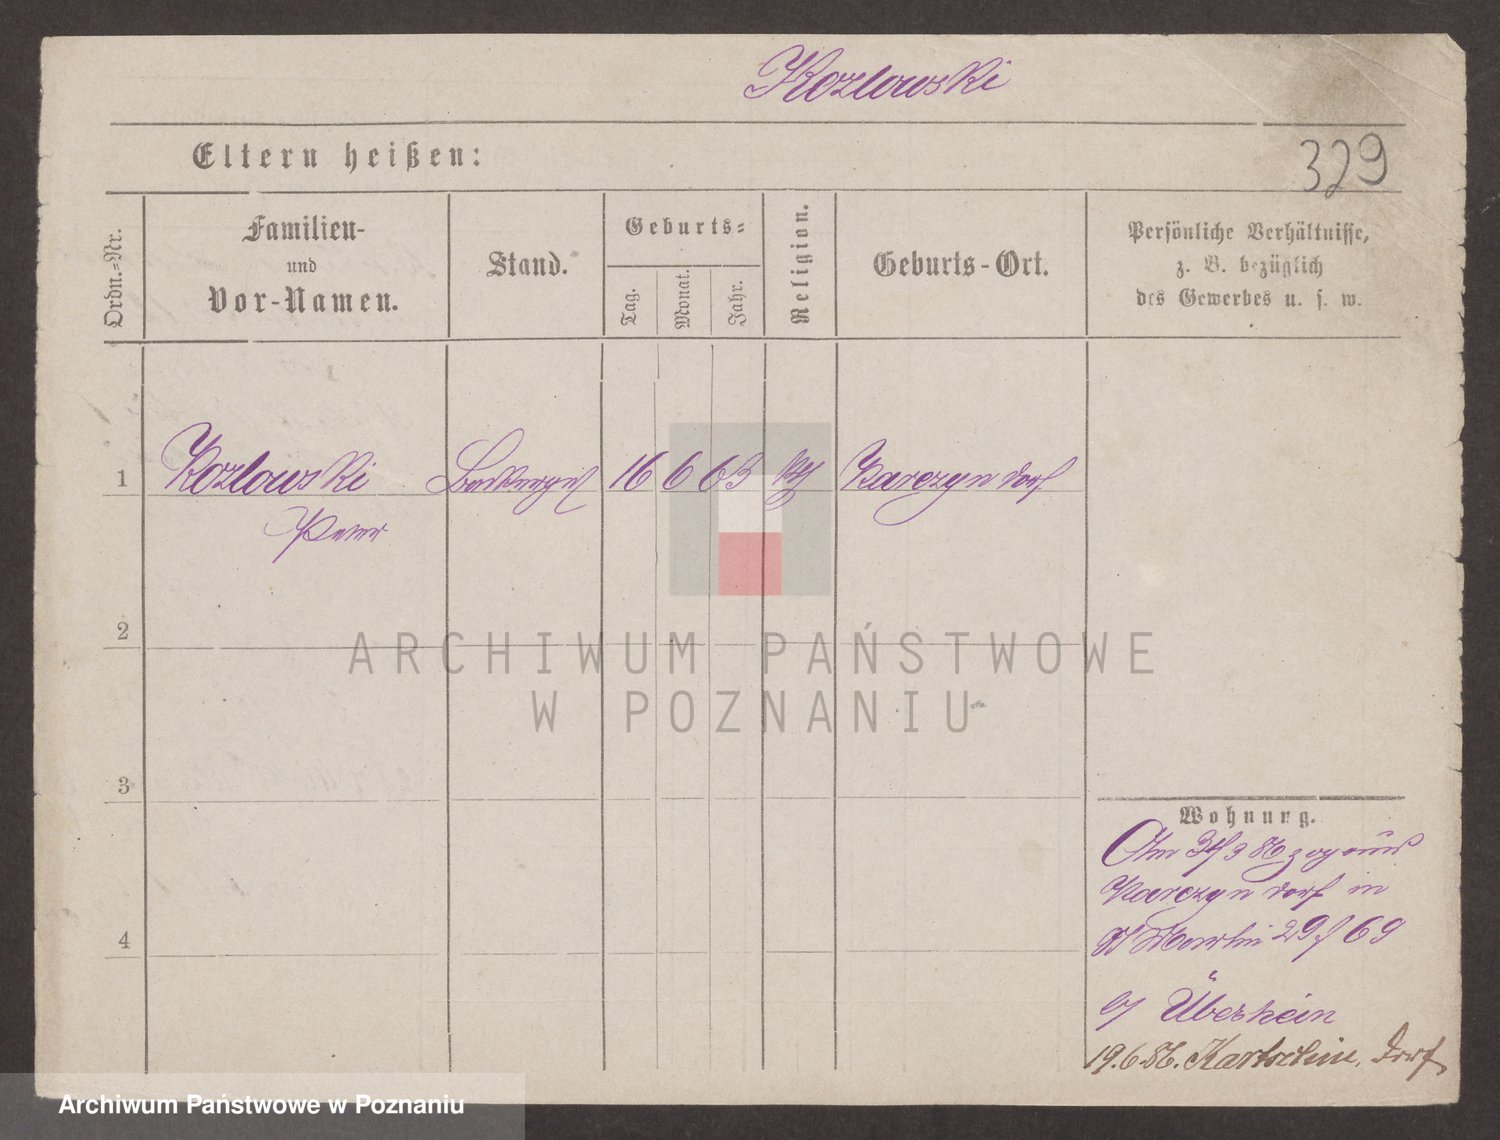 Kozlowski
329
Eltern heißen:
Ordn.-Nr.
Familien-
und
Vor-Namen.
Stand.
Geburts-
Tag.
Monat.
Jahr.
Religion.
Geburts-Ort.
Persönliche Verhältnisse,
z. B. bezüglich
des Gewerbes u. s. w.
1
Kozlowski
Peter
16 6 63
Karczyn dorf
2
3
4
Wohnung.
Am
Karczyn dorf in
St Martin 29/69
19.6.86. dorf
ARCHIWUM PAŃSTWOWE
W POZNANIU
Archiwum Państwowe w Poznaniu